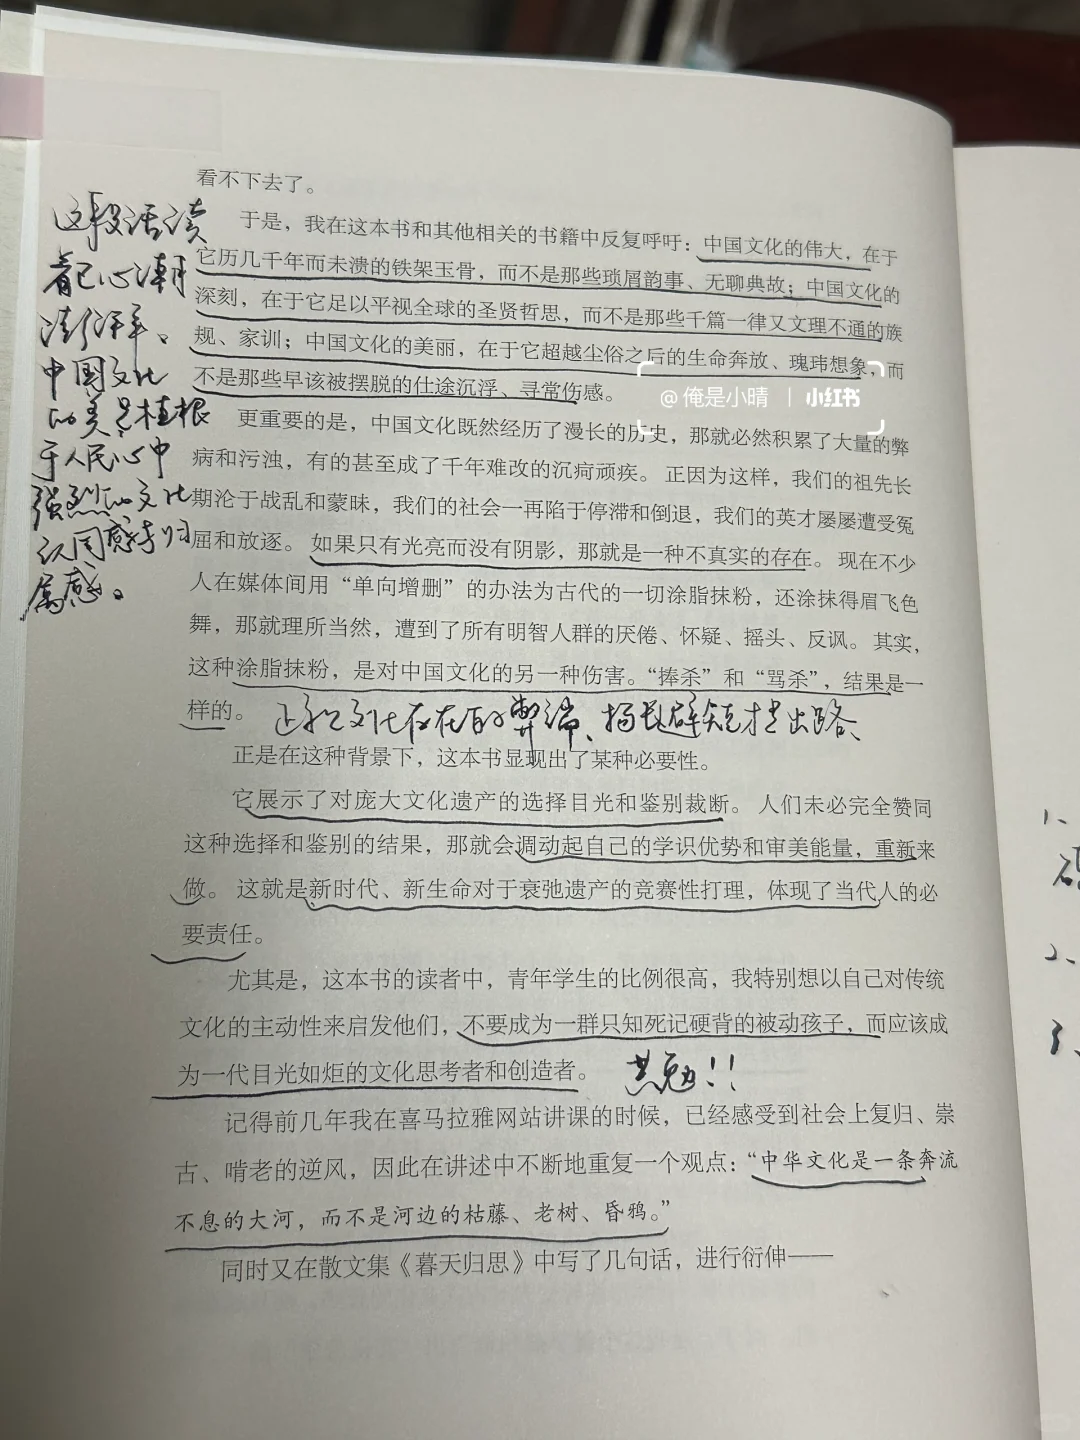 看不下去了。
于是，我在这本书和其他相关的书籍中反复呼吁：中国文化的伟大，在于
它历几千年而未溃的铁架玉骨，而不是那些琐屑韵事、无聊典故；中国文化的
深刻，在于它足以平视全球的圣贤哲思，而不是那些千篇一律又文理不通的族
规、家训；中国文化的美丽，在于它超越尘俗之后的生命奔放、瑰玮想象，而
不是那些早该被摆脱的仕途沉浮、寻常伤感。
@俺是小晴 | 小红书
更重要的是，中国文化既然经历了漫长的历史，那就必然积累了大量的弊
病和污浊，有的甚至成了千年难改的沉疴顽疾。正因为这样，我们的祖先长
期沦于战乱和蒙昧，我们的社会一再陷于停滞和倒退，我们的英才屡屡遭受冤
屈和放逐。如果只有光亮而没有阴影，那就是一种不真实的存在。现在不少
人在媒体间用“单向增删”的办法为古代的一切涂脂抹粉，还涂抹得眉飞色
舞，那就理所当然，遭到了所有明智人群的厌倦、怀疑、摇头、反讽。其实，
这种涂脂抹粉，是对中国文化的另一种伤害。“捧杀”和“骂杀”，结果是一
样的。
正视文化存在的弊端、扬长辟短才是出路、
正是在这种背景下，这本书显现出了某种必要性。
它展示了对庞大文化遗产的选择目光和鉴别裁断。人们未必完全赞同
这种选择和鉴别的结果，那就会调动起自己的学识优势和审美能量，重新来
做。这就是新时代、新生命对于衰弛遗产的竞赛性打理，体现了当代人的必
要责任。
尤其是，这本书的读者中，青年学生的比例很高，我特别想以自己对传统
文化的主动性来启发他们，不要成为一群只知死记硬背的被动孩子，而应该成
为一代目光如炬的文化思考者和创造者。
共勉！！
记得前几年我在喜马拉雅网站讲课的时候，已经感受到社会上复归、崇
古、啃老的逆风，因此在讲述中不断地重复一个观点：“中华文化是一条奔流
不息的大河，而不是河边的枯藤、老树、昏鸦。”
同时又在散文集《暮天归思》中写了几句话，进行衍伸——
这段话读
着已心潮
澎湃、
中国文化
的美是植根
于人民心中
强烈的文化
认同感与归
属感。
1、
2、
3、